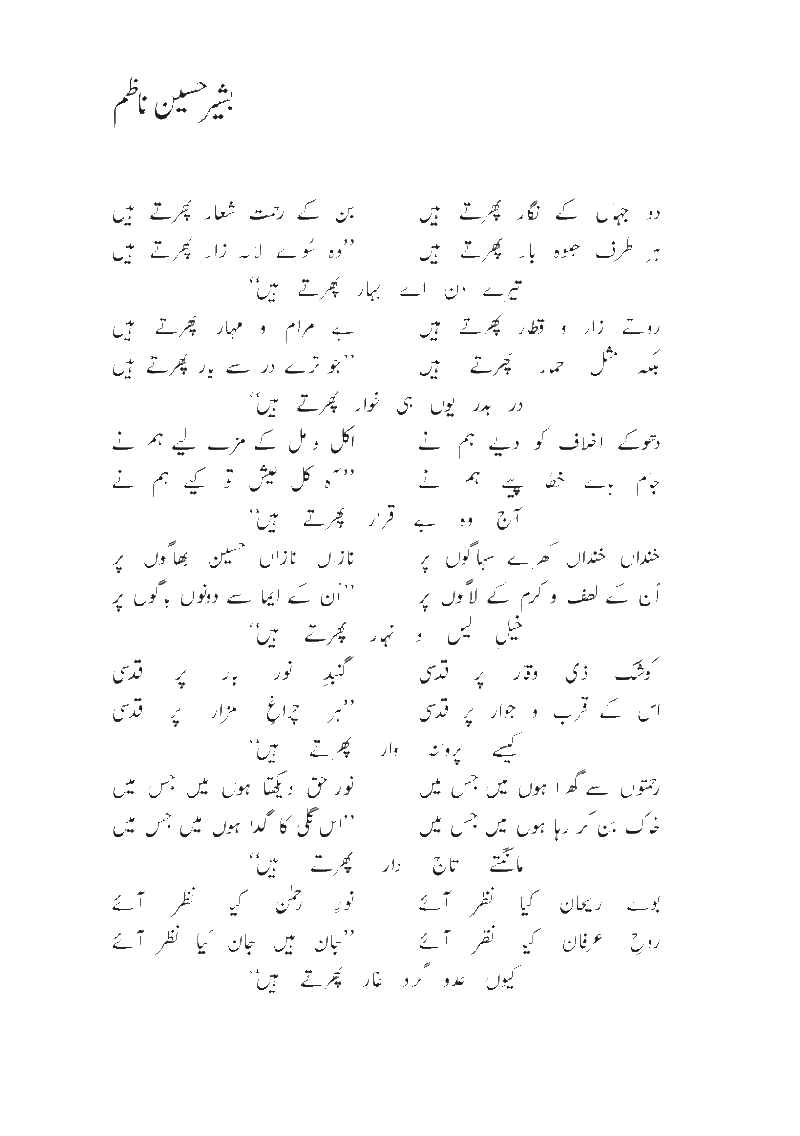 بشیر حسین ناظم
دو جہاں کے نگار پھرتے ہیں بن کے رحمت شعار پھرتے ہیں
ہر طرف جلوہ بار پھرتے ہیں ”وہ سُوئے لالہ زار پھرتے ہیں
تیرے دن اے بہار پھرتے ہیں“
روتے زار و قطار پھرتے ہیں بے مرام و مہار پھرتے ہیں
بلکہ مثل حمار پھرتے ہیں ”جو ترے در سے یار پھرتے ہیں
در بدر یوں ہی خوار پھرتے ہیں“
دھوکے اخلاف کو دیے ہم نے اکل و مل کے مزے لیے ہم نے
جام بادے خطا پیے ہم نے ”آہ کل عیش تو کیے ہم نے
آج وہ بے قرار پھرتے ہیں“
خنداں خنداں کھرے سہاگوں پر نازاں نازاں حسین بھاگوں پر
اُن کے لطف و کرم کے لاگوں پر ”اُن کے ایما سے دونوں باگوں پر
خیلِ لیل و نہار پھرتے ہیں“
کوشک ذی وقار پر قدسی گنبدِ نور بار پر قدسی
اس کے قرب و جوار پر قدسی ”ہر چراغِ مزار پر قدسی
کیسے پروانہ وار پھرتے ہیں“
رحمتوں سے گھرا ہوں میں جس میں نور حق دیکھتا ہوں میں جس میں
خاک بن کر رہا ہوں میں جس میں ”اس گلی کا گدا ہوں میں جس میں
مانگتے تاج دار پھرتے ہیں“
بوئے ریحان کیا نظر آئے نورِ رحمٰن کیا نظر آئے
روحِ عرفان کیا نظر آئے ”جان ہیں جان کیا نظر آئے
کیوں عدو گرد غار پھرتے ہیں“